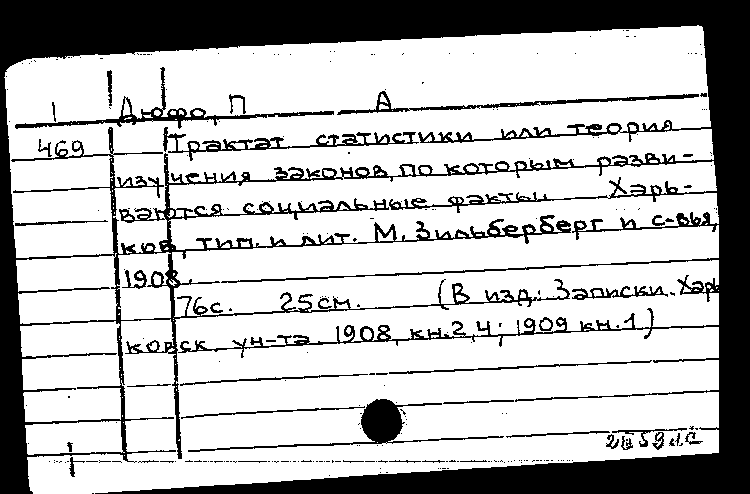 1 Дюфо, П А
469 Трактат статистики или теория
изучения законов, по которым разви-
ваются социальные факты. Харь-
ков, тип. и лит. М. Зильберберг и с-вья,
1908.
76с. 25см. (В изд.: Записки Харь
ковск. ун-та. 1908, кн.2,4; 1909 кн.1)